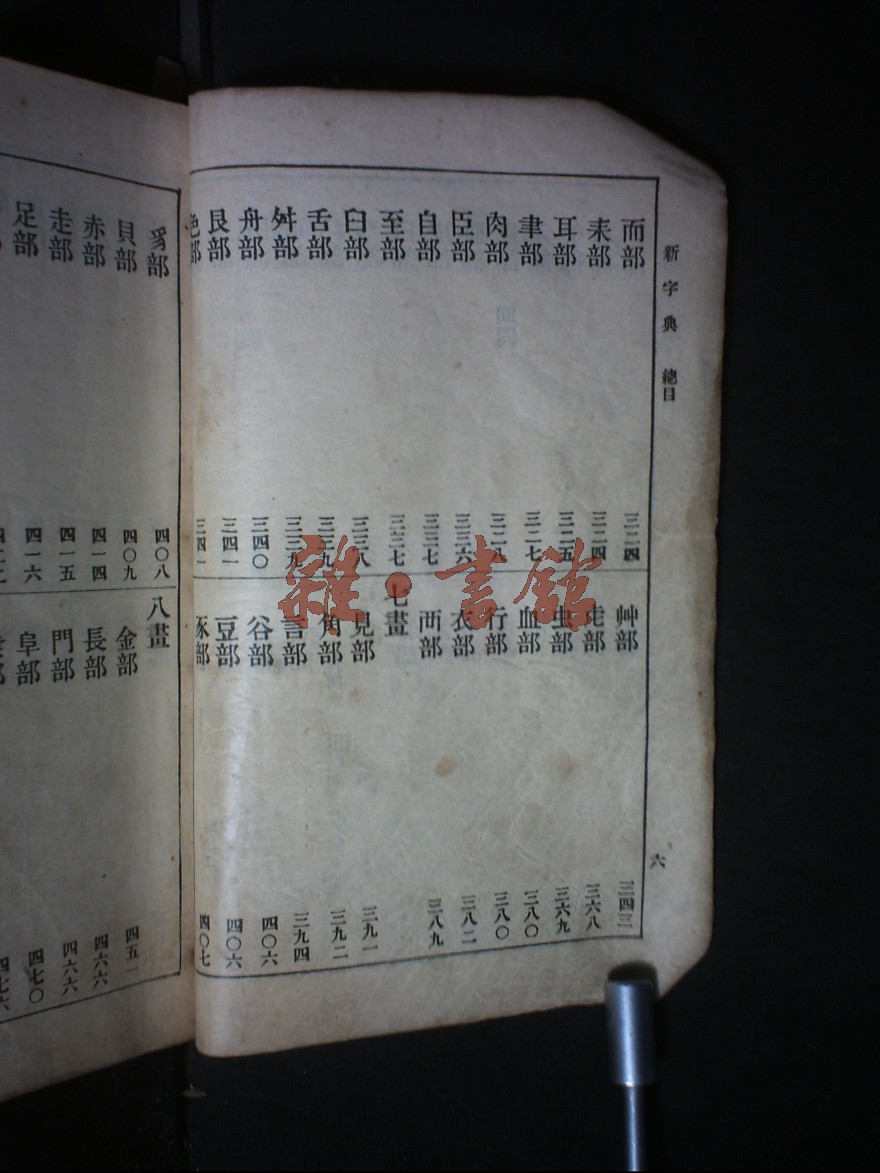 新字典 總目
六
而部 三二四
耒部 三二四
耳部 三二五
聿部 三二七
肉部 三二八
臣部 三三六
自部 三三七
至部 三三七
臼部 三三八
舌部 三三九
舛部 三三九
舟部 三四〇
艮部 三四一
色部 三四一
艸部 三四二
虍部 三六八
虫部 三六九
血部 三八〇
行部 三八〇
衣部 三八二
襾部 三八九
七畫
見部 三九一
角部 三九二
言部 三九四
谷部 四〇六
豆部 四〇六
豕部 四〇七
豸部 四〇八
貝部 四〇九
赤部 四一四
走部 四一五
足部 四一六
八畫
金部 四五一
長部 四六六
門部 四六六
阜部 四七〇
雜·書館